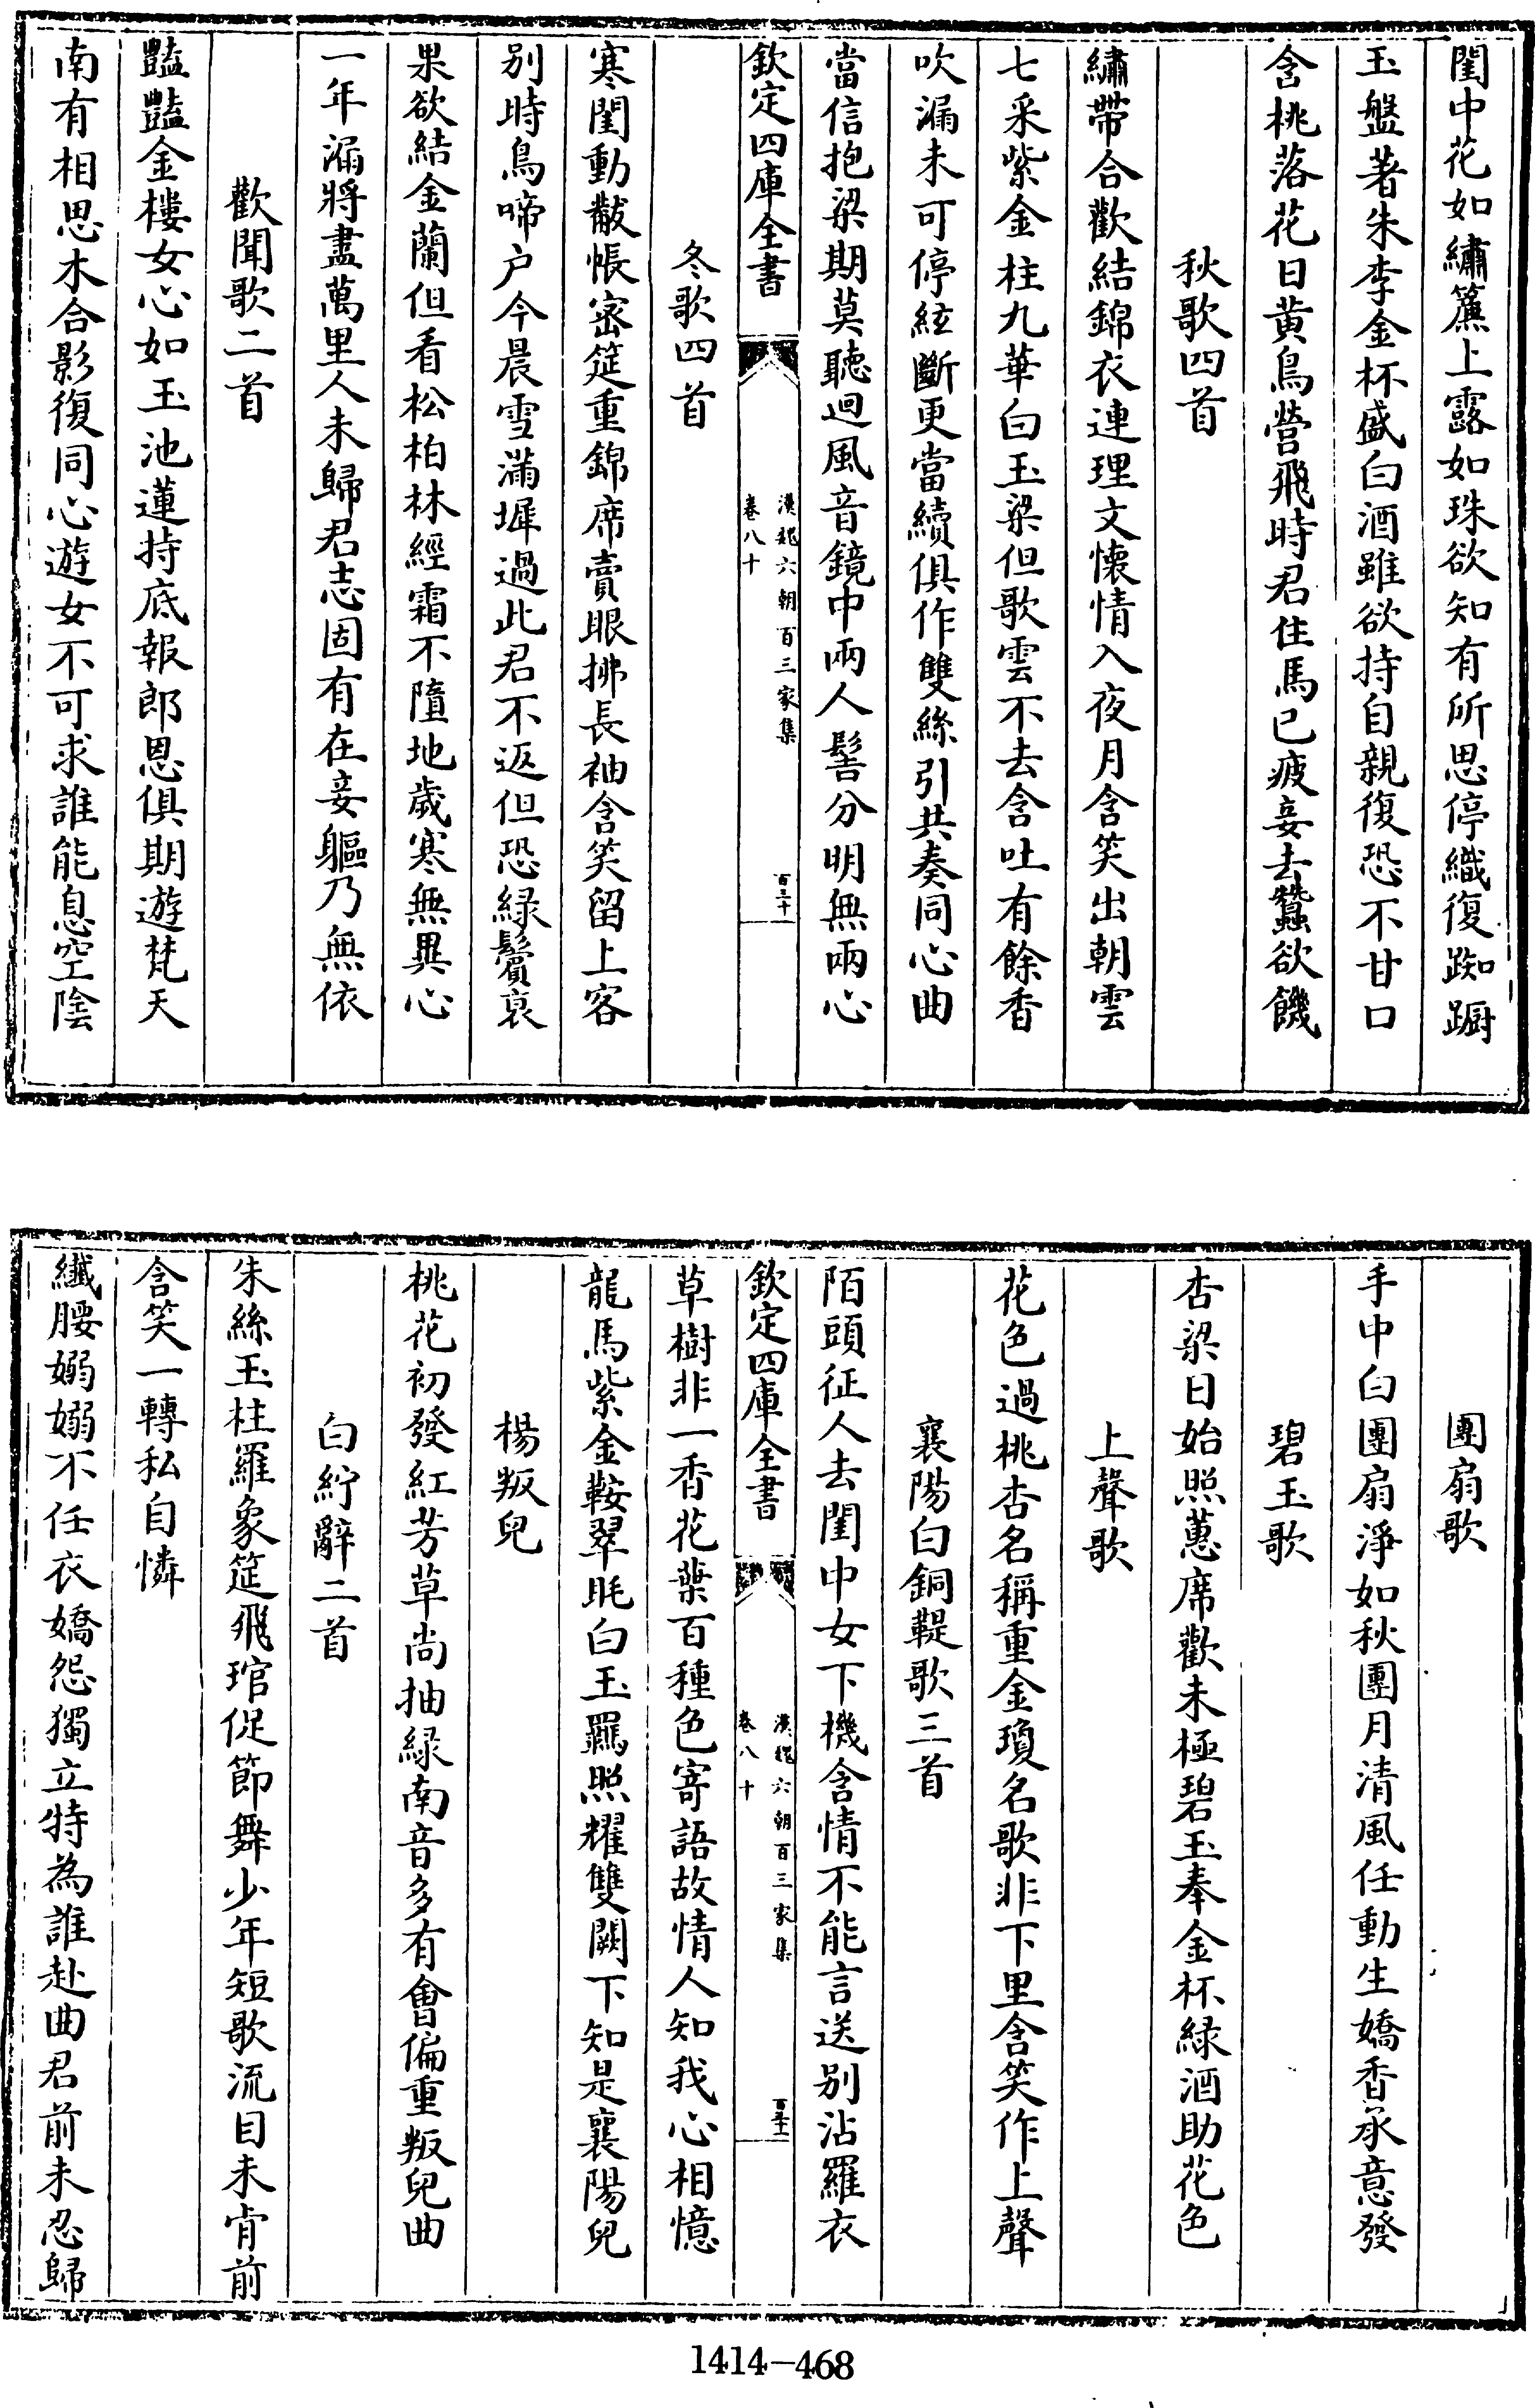 閨中花如繡簾上露如珠欲知有所思停織復踟蹰
玉盤著朱李金杯盛白酒雖欲持自親復恐不甘口
含桃落花日黄鳥營飛時君住馬已疲妾去蠶欲饑
秋歌四首
繡帶合歡結錦衣連理文懐情入夜月含笑出朝雲
七采紫金柱九華白玉梁但歌雲不去含吐有餘香
吹漏未可停絃斷更當續俱作雙絲引共奏同心曲
當信抱梁期莫聽迴風音鏡中兩人髻分明無兩心
欽定四庫全書
漢魏六朝百三家集
卷八十
百三十
冬歌四首
寒閨動黻帳宻筵重錦席賣眼拂長袖含笑留上客
别時鳥啼户今晨雪滿墀過此君不返但恐緑鬢衰
果欲結金蘭但看松柏林經霜不隨地歲寒無異心
一年漏將盡萬里人未歸君志固有在妾軀乃無依
歡聞歌二首
豔豔金樓女心如玉池蓮持底報郎恩俱期遊梵天
南有相思木合影復同心遊女不可求誰能息空陰
團扇歌
手中白團扇淨如秋團月清風任動生嬌香承意發
碧玉歌
杏梁日始照蕙席歡未極碧玉奉金杯緑酒助花色
上聲歌
花色過桃杏名稱重金瓊名歌非下里含笑作上聲
襄陽白銅鞮歌三首
陌頭征人去閨中女下機含情不能言送别沾羅衣
欽定四庫全書
漢魏六朝百三家集
卷八十
百三十一
草樹非一香花葉百種色寄語故情人知我心相憶
龍馬紫金鞍翠眊白玉羈照耀雙闕下知是襄陽兒
楊叛兒
桃花初發紅芳草尚抽緑南音多有㑹偏重叛兒曲
白紵辭二首
朱絲玉柱羅象筵飛琯促節舞少年短歌流目未肯前
含笑一轉私自憐
纖腰嫋嫋不任衣嬌怨獨立特為誰赴曲君前未忍歸
1414—468